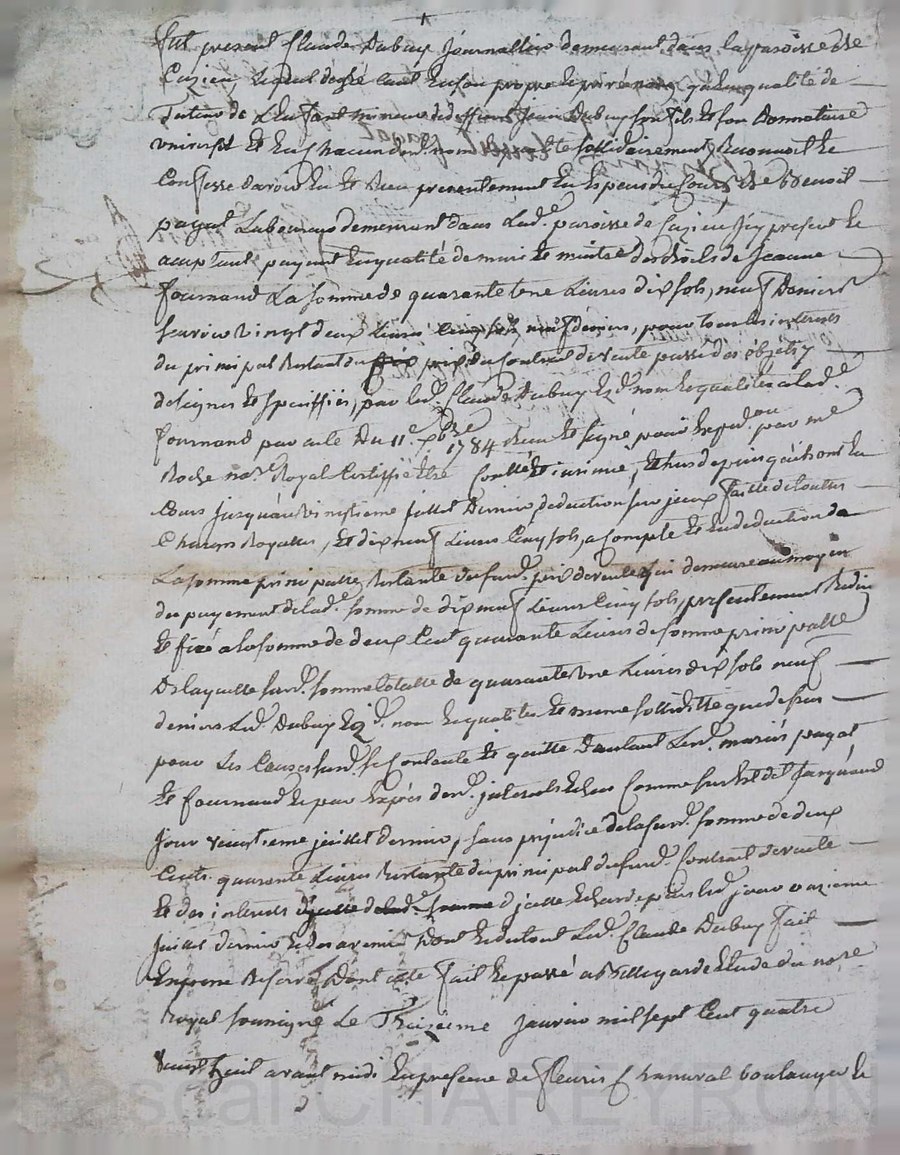 fut present Claude Dubuy Journallier demeurant dans la paroisse de
Cuzieu lequel de gré tant en son propre et privé nom, qu'en qualité de
Tuteur de L'enfant mineur de deffunt Jean Dubuy son fils et son Donnataire
universel et en chacun des noms solidairement Reconnoit et
Confesse d'avoir eu et Reçu presentement en Especes de Cours de Benoit
payat Laboureur demeurant dans Lad.e paroisse de Cuzieu icy present et
acceptant payant en qualité de mari et maitre des droits de Jeanne
fournand La somme de quarante une Livres dix sols, neuf Deniers
scavoir vingt deux Livres Cinq sols neuf deniers, pour tous les interets
du principal Restant du prix du Contrat de vente passé des objets y
designés et spécifiés, par led. Claude Dubuy esd. nom et qualités a lad.e
fournand par acte Du 11.e xbre 1784 Recu et signé par me
Roche no.re Royal Certiffié être Contrôlé et insinué, Echus depuis qu'ils ont eu
Cours jusqu'au vingtieme juillet Dernier deduction sur iceux faitte de toutes
Charges Royalles, et dix neuf Livres Cinq sols, a Compte et en deduction de
La somme principalle Restante dud. prix de vente qui demeure au moyen
du payement de lad.e somme de dix neuf Livres Cinq sols, presentement Reduit
et fixé a la somme de deux Cent quarante Livres de somme principalle
De laquelle sus.d. somme totalle de quarante une Livres dix sols neuf
deniers Led. Dubuy esd. nom et qualités et meme sollidité que dessus
pour Les Causes susd. se Contente et quitte D'autant Lesd. mariés payat
et fournand et par Exprès desd. interets Echus Comme sus est dit jusqu'aud
jour vingtieme juillet dernier, sans prejudice de la susd. somme de deux
Cents quarante Livres Restante du principal du susd. Contrat de vente
et des interets d'icelle Echus depuis led. jour
juillet dernier et des avenir Dont et du tout Led. Claude Dubuy fait
Expresse Reserve Dont acte fait et passé a Bellegarde Etude du no.re
Royal soussigné Le Troisieme janvier mil sept Cent quatre
vingt huit avant midi En presence de fleuris Chanurat boulanger et
Pascal CHAREYRON